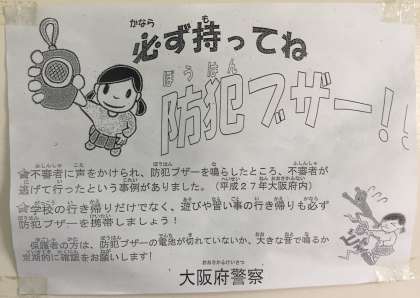 必ず持ってね
防犯ブザー!!
☆不審者に声をかけられ、防犯ブザーを鳴らしたところ、不審者が
逃げて行ったという事例がありました。(平成27年大阪府内)
☆学校の行き帰りだけでなく、遊びや習い事の行き帰りも必ず
防犯ブザーを携帯しましょう!
保護者の方は、防犯ブザーの電池が切れていないか、大きな音で鳴るか
定期的に確認をお願いします!
大阪府警察